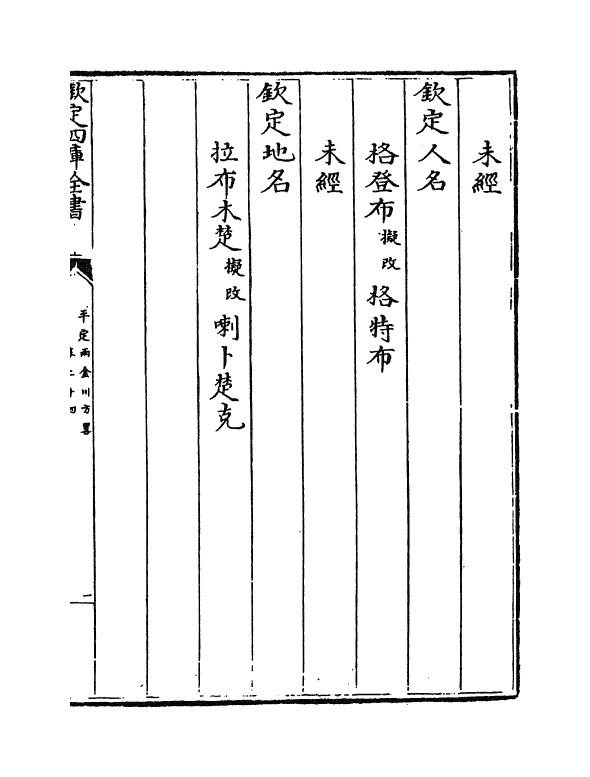 未經
欽定人名
格登布擬改格特布
未經
欽定地名
拉布木楚擬改喇卜楚克
欽定四庫全書
平定兩金川方畧
卷二十四
一